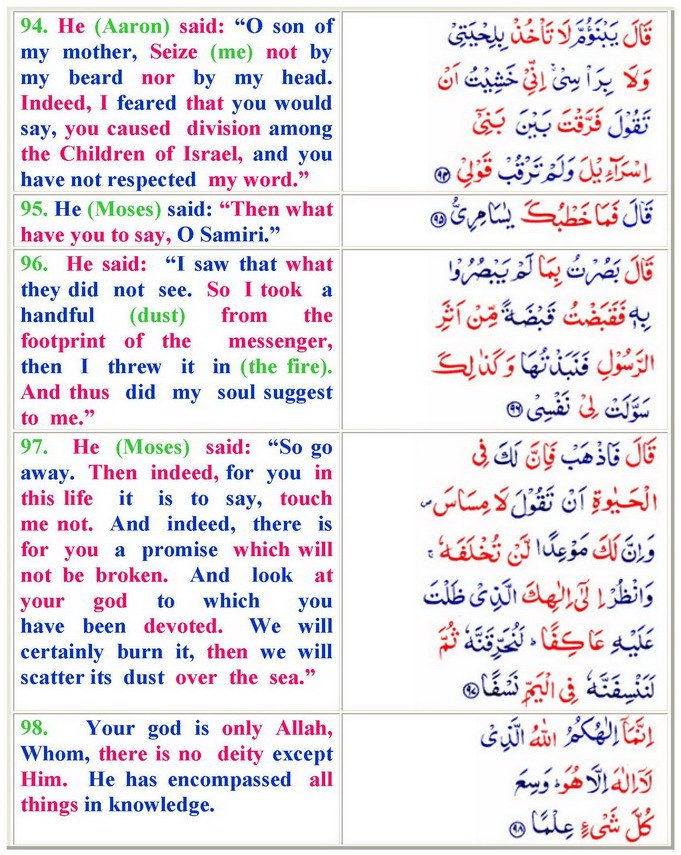 94. He (Aaron) said: “O son of
my mother, Seize (me) not by
my beard nor by my head.
Indeed, I feared that you would
say, you caused division among
the Children of Israel, and you
have not respected my word.”
قَالَ يَبْنَؤُمَّ لَا تَأْخُذْ بِلِحْيَتِيْ
وَلَا بِرَاْسِيْ ۚ اِنِّيْ خَشِيْتُ اَنْ
تَقُوْلَ فَرَّقْتَ بَيْنَ بَنِيْٓ
اِسْرَآءِيْلَ وَلَمْ تَرْقُبْ قَوْلِيْ ﴿٩٤﴾
95. He (Moses) said: “Then what
have you to say, O Samiri.”
قَالَ فَمَا خَطْبُكَ يٰسَامِرِيُّ ﴿٩٥﴾
96. He said: “I saw that what
they did not see. So I took a
handful (dust) from the
footprint of the messenger,
then I threw it in (the fire).
And thus did my soul suggest
to me.”
قَالَ بَصُرْتُ بِمَا لَمْ يَبْصُرُوْا
بِهٖ فَقَبَضْتُ قَبْضَةً مِّنْ اَثَرِ
الرَّسُوْلِ فَنَبَذْتُهَا وَكَذٰلِكَ
سَوَّلَتْ لِيْ نَفْسِيْ ﴿٩٦﴾
97. He (Moses) said: “So go
away. Then indeed, for you in
this life it is to say, touch
me not. And indeed, there is
for you a promise which will
not be broken. And look at
your god to which you
have been devoted. We will
certainly burn it, then we will
scatter its dust over the sea.”
قَالَ فَاذْهَبْ فَاِنَّ لَكَ فِي
الْحَيٰوةِ اَنْ تَقُوْلَ لَا مِسَاسَ ۖ
وَاِنَّ لَكَ مَوْعِدًا لَّنْ تُخْلَفَهٗ ۚ
وَانْظُرْ اِلٰٓى اِلٰهِكَ الَّذِيْ ظَلْتَ
عَلَيْهِ عَاكِفًا ؕ لَنُحَرِّقَنَّهٗ ثُمَّ
لَنَنْسِفَنَّهٗ فِي الْيَمِّ نَسْفًا ﴿٩٧﴾
98. Your god is only Allah,
Whom, there is no deity except
Him. He has encompassed all
things in knowledge.
اِنَّمَآ اِلٰهُكُمُ اللّٰهُ الَّذِيْ
لَآ اِلٰهَ اِلَّا هُوَ ؕ وَسِعَ
كُلَّ شَيْءٍ عِلْمًا ﴿٩٨﴾